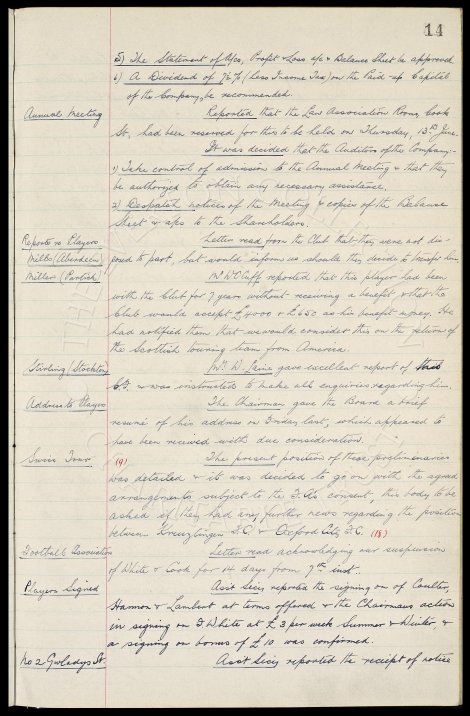 14
5) The Statement of A/cs, Profit & Loss a/c & Balance Sheet be approved
6) A Dividend of 7½% (Less Income Tax) on the Paid-up Capital
of the Company, be recommended.
Annual Meeting Reported that the Law Association Rooms, Cook
St, had been reserved for this to be held on Thursday, 15th June.
It was decided that the Auditors of the Company:-
1) Take control of admission to the Annual Meeting & that they
be authorized to obtain any necessary assistance.
2) Despatch notices of the Meeting & copies of the Balance
Sheet & a/cs to the Shareholders.
Reports re Players
Mills (Aberdeen) Letter read from the Club that they were not dis-
posed to part, but would inform us should they decide to transfer him
Miller (Partick) Mr W.C. Cuff reported that this player had been
with the Club for 7 years without receiving a benefit & that the
Club would accept £4000 & £650 as his benefit money. He
had notified them that we would consider this on the return of
the Scottish touring team from America.
Stirling (Stockton) Mr D. gave excellent report of this
C.F. & was instructed to make all enquiries regarding him.
Address to Players The Chairman gave the Board a brief
resumé of his address on Friday last, which appeared to
have been received with due consideration.
Swiss Tour (9) The present position of these preliminaries
was detailed & it was decided to go on with the agreed
arrangements subject to the F.A's consent, this body to be
asked if they had any further news regarding the position
between Kreuzlingen F.C. & Oxford City F.C. (18)
Football Association Letter read acknowledging our suspension
of White & Cook for 14 days from 7th inst.
Players Signed Asst Secy reported the signing on of Coulter,
Hannon & Lambert at terms offered & the Chairmans action
in signing on T. White at £3 per week Summer & Winter, &
a signing on bonus of £10 was confirmed.
No 2 Gwladys St. Asst Secy reported the receipt of notice